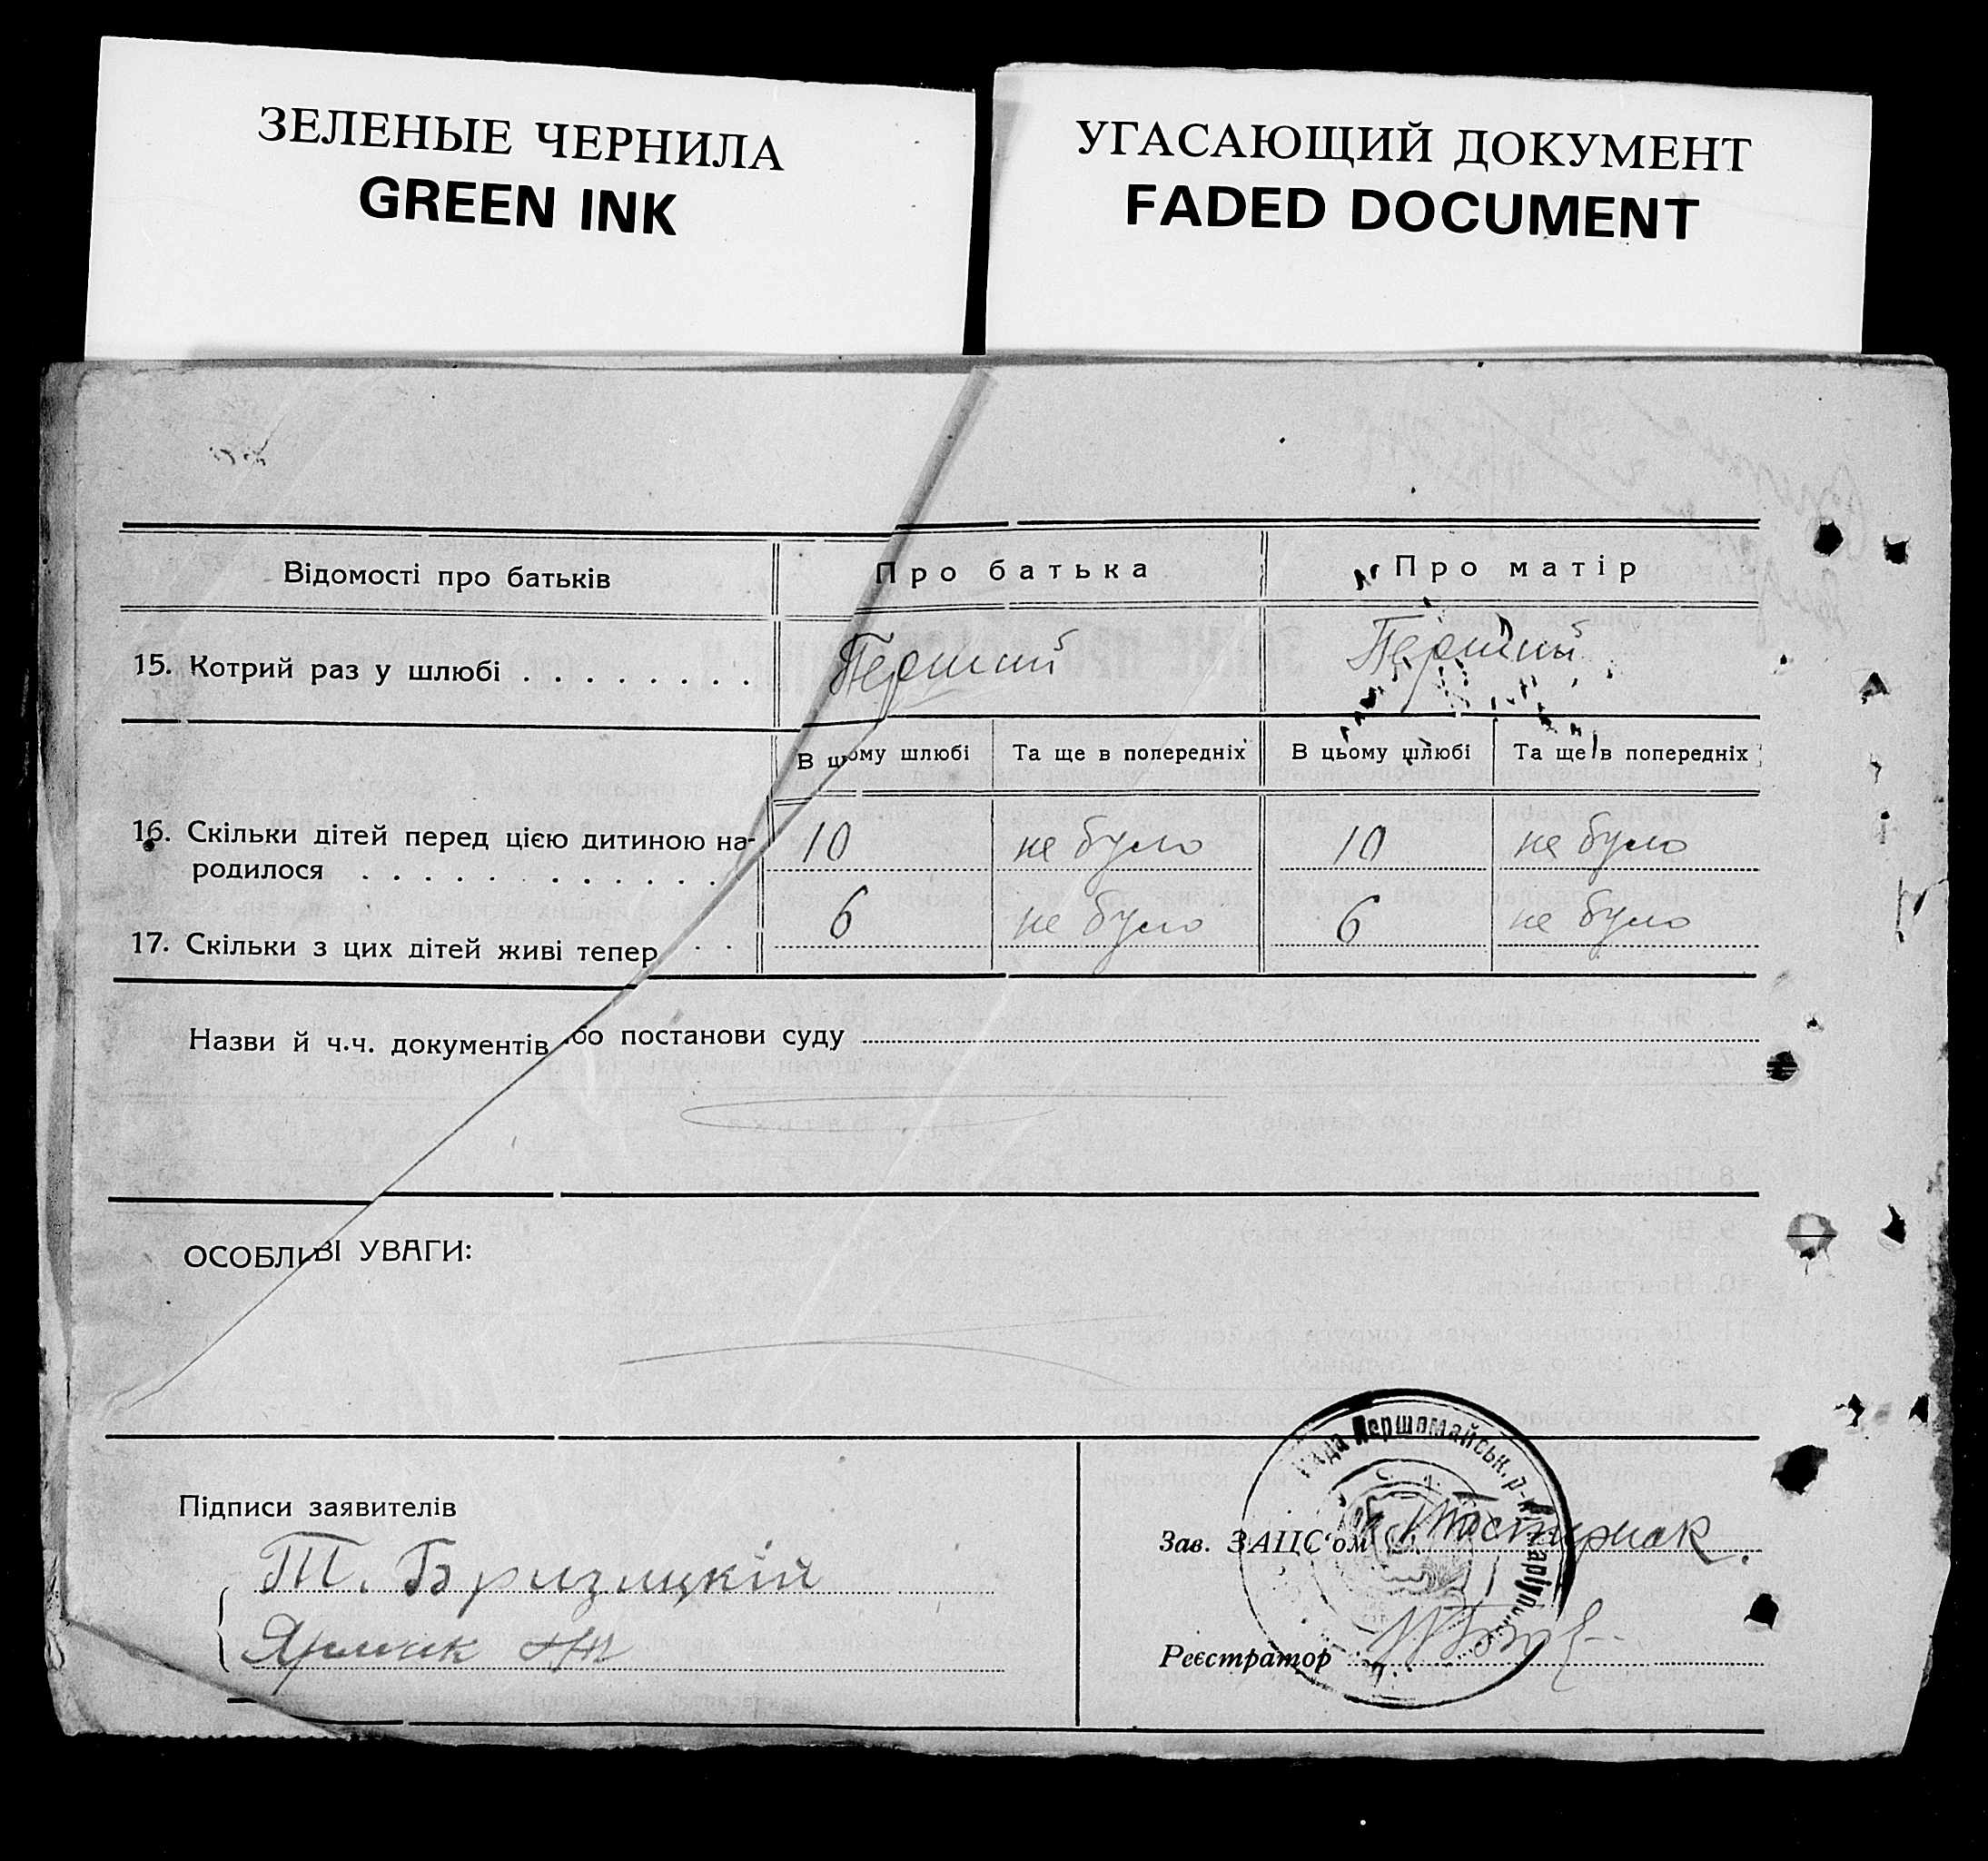 ЗЕЛЕНЫЕ ЧЕРНИЛА
GREEN INK
УГАСАЮЩИЙ ДОКУМЕНТ
FADED DOCUMENT
Відомості про батьків Про батька Про матір
15. Котрий раз у шлюбі . . . . . . . . Перший Перший
В цьому шлюбі Та ще в попередніх В цьому шлюбі Та ще в попередніх
16. Скільки дітей перед цією дитиною на-
родилося . . . . . . . . . . . . 10 не було 10 не було
17. Скільки з цих дітей живі тепер . . 6 не було 6 не було
Назви й ч.ч. документів бо постанови суду
ОСОБЛИВІ УВАГИ:
Підписи заявителів
Т. Бризицкій
Ярмак
Зав. ЗАЦС'ом Пастернак.
Реєстратор
Рада Першомайськ. р-н